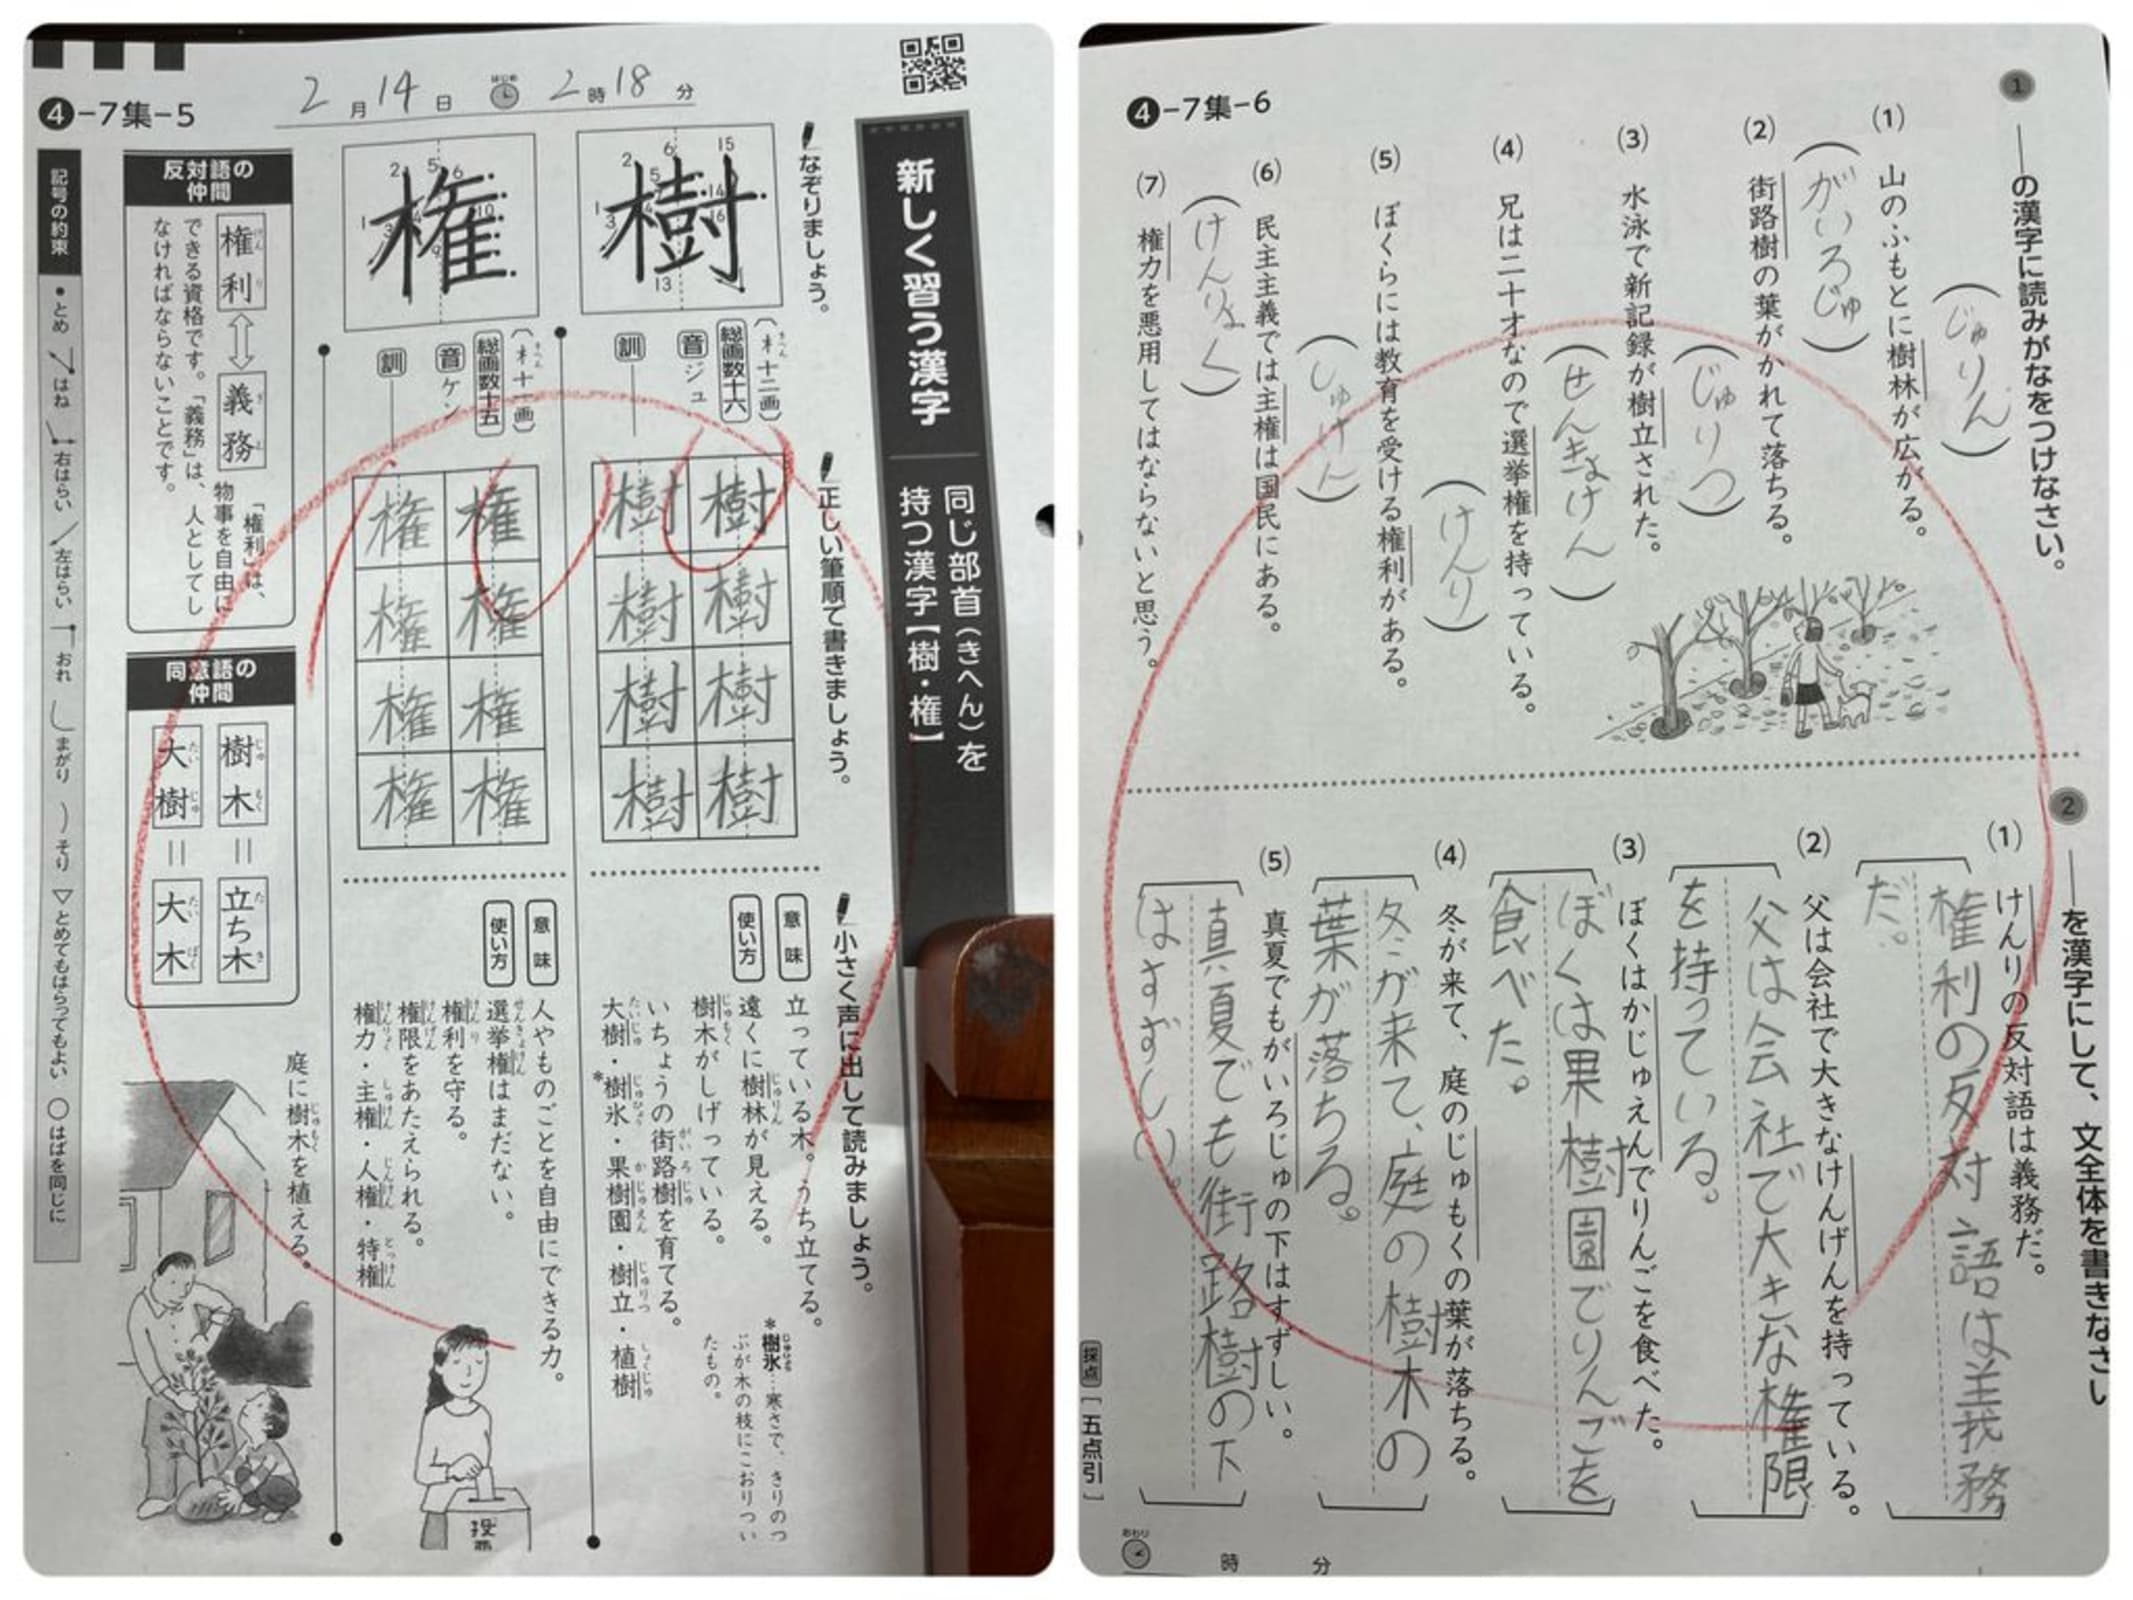 4-7集-5
2月14日 はじめ 2時18分
新しく習う漢字
同じ部首（きへん）を
持つ漢字【樹・権】
なぞりましょう。
樹
（木十二画）
きへん
総画数十六
音 ジュ
訓
権
（木十一画）
きへん
総画数十五
音 ケン
訓
正しい筆順で書きましょう。
樹 樹 樹 樹
樹 樹 樹 樹
権 権 権 権
権 権 権 権
小さく声に出して読みましょう。
意味
立っている木。うち立てる。
使い方
遠くに樹林が見える。
樹木がしげっている。
いちょうの街路樹を育てる。
大樹・*樹氷・果樹園・樹立・植樹
*樹氷…寒さで、きりのつ
ぶが木の枝にこおりつい
たもの。
意味
人やものごとを自由にできる力。
使い方
選挙権はまだない。
権利を守る。
権限をあたえられる。
権力・主権・人権・特権
投票
反対語の
仲間
権利⇔義務
けんり ぎむ
「権利」は、
物事を自由に
できる資格です。「義務」は、人としてし
なければならないことです。
同意語の
仲間
樹木＝立ち木
じゅもく たちき
大樹＝大木
たいじゅ たいぼく
庭に樹木を植える。
記号の約束 ●とめ はね 右はらい 左はらい おれ まがり そり ▽とめてもはらってもよい ○はばを同じに
4-7集-6
1 ――の漢字に読みがなをつけなさい。
(1) 山のふもとに樹林が広がる。
（じゅりん）
(2) 街路樹の葉がかれて落ちる。
（がいろじゅ）
(3) 水泳で新記録が樹立された。
（じゅりつ）
(4) 兄は二十才なので選挙権を持っている。
（せんきょけん）
(5) ぼくらには教育を受ける権利がある。
（けんり）
(6) 民主主義では主権は国民にある。
（しゅけん）
(7) 権力を悪用してはならないと思う。
（けんりょく）
2 ――を漢字にして、文全体を書きなさい
(1) けんりの反対語は義務だ。
権利の反対語は義務
だ。
(2) 父は会社で大きなけんげんを持っている。
父は会社で大きな権限
を持っている。
(3) ぼくはかじゅえんでりんごを食べた。
ぼくは果樹園でりんごを
食べた。
(4) 冬が来て、庭のじゅもくの葉が落ちる。
冬が来て、庭の樹木の
葉が落ちる。
(5) 真夏でもがいろじゅの下はすずしい。
真夏でも街路樹の下
はすずしい。
採点［五点引］
おわり 時 分